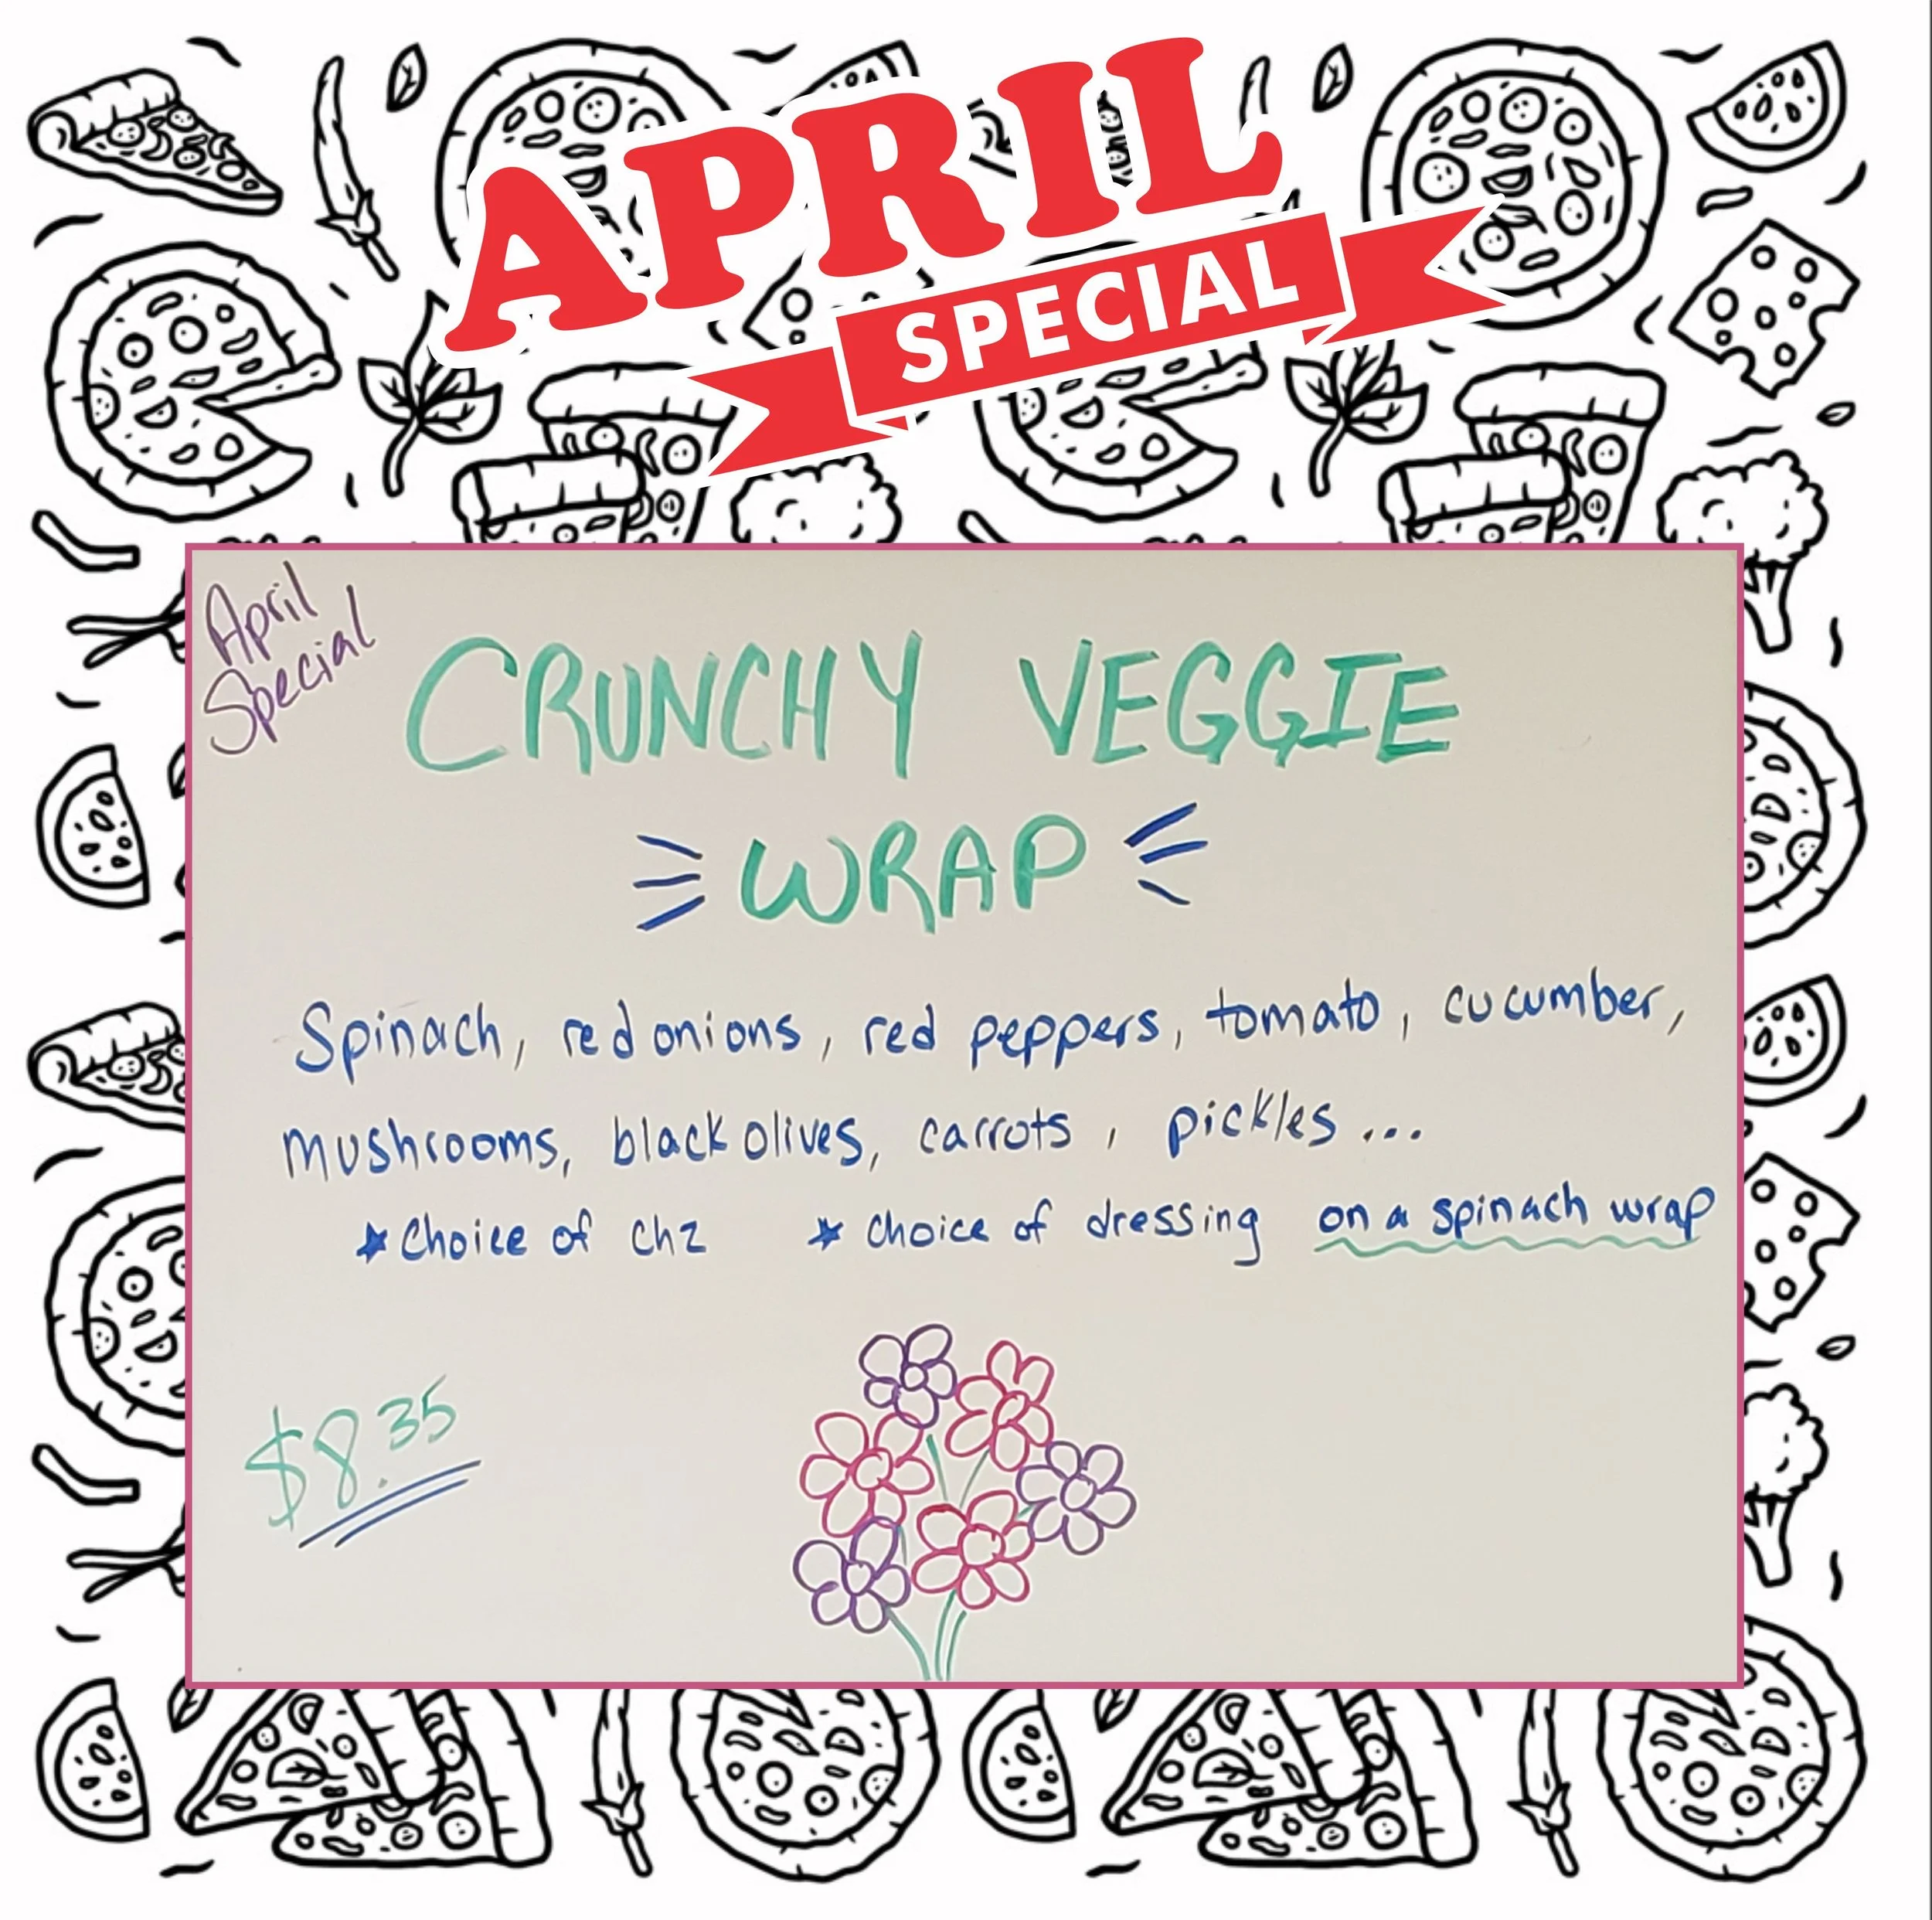 APRIL
SPECIAL
April
Special
CRUNCHY VEGGIE
WRAP
Spinach, red onions, red peppers, tomato, cucumber,
mushrooms, black olives, carrots, pickles...
★ Choice of chz ★ choice of dressing on a spinach wrap
$8.35